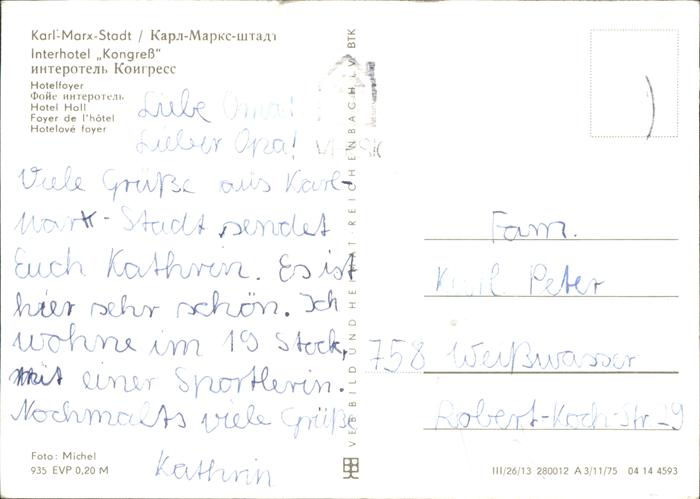 Karl-Marx-Stadt / Карл-Маркс-штадт
Interhotel „Kongreß“
интеротель Конгресс
Hotelfoyer
Фойе интеротель
Hotel Hall
Foyer de l'hôtel
Hotelové foyer
Liebe Oma!
Lieber Opa!
Viele Grüße aus Karl-
Marx-Stadt sendet
Euch Kathrin. Es ist
hier sehr schön. Ich
wohne im 19 Stock,
mit einer Sportlerin.
Nochmalts viele Grüße
Kathrin
Foto: Michel
935 EVP 0,20 M
VEB BILD UND HEIMAT · REICHENBACH I. V. BTK
Fam.
Karl Peter
758 Weißwasser
Robert-Koch-Str 29
III/26/13 280012 A 3/11/75 04 14 4593